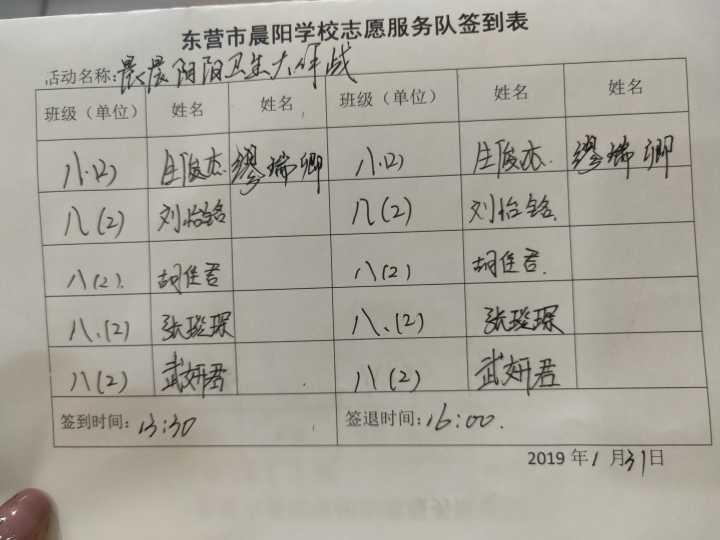 东营市晨阳学校志愿服务队签到表
活动名称:晨晨阳阳卫生大作战
班级（单位） 姓名 姓名 班级（单位） 姓名 姓名
八.(2) 庄俊杰. 缪瑞卿 八.(2) 庄俊杰. 缪瑞卿
八(2) 刘怡铭 八(2) 刘怡铭.
八(2). 胡佳君 八(2) 胡佳君.
八.(2) 张琛 八.(2) 张琛
八(2) 武妍君 八(2) 武妍君
签到时间: 13:30 签退时间: 16:00.
2019 年 1 月 31 日